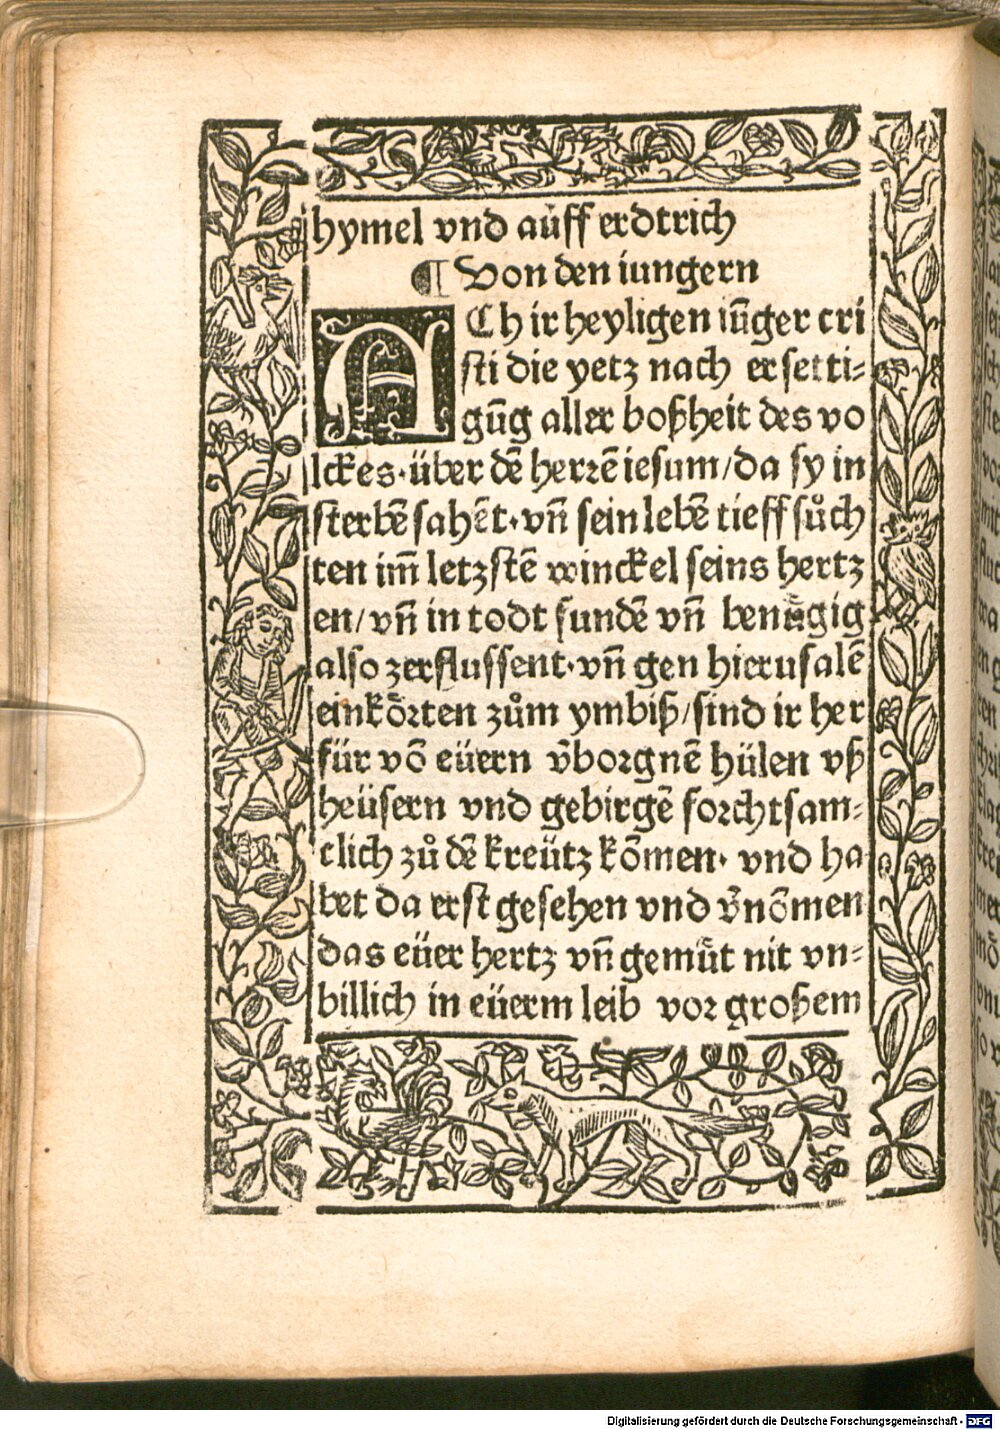 hymel vnd auff erdtrich
¶ Von den iungern
ACh ir heyligen iūger cri
sti die yetz nach ersetti⸗
gūg aller boßheit des vo
lckes·über dē herrē iesum/da sy in
sterbē sahēt·vn̄ sein lebē tieff sůch
ten im̄ letzstē winckel seins hertz
en/vn̄ in todt sundē vn̄ benuͤgig
also zerflussent·vn̄ gen hierusalē
einkoͤrten zům ymbiß/sind ir her
für vō eüern v̄borgnē hülen vß
heüsern vnd gebirgē forchtsam⸗
clich zů dē kreütz kōmen· vnd ha
bet da erst gesehen vnd v̄nōmen
das eüer hertz vn̄ gemuͤt nit vn⸗
billich in eüerm leib vor großem
Digitalisierung gefördert durch die Deutsche Forschungsgemeinschaft - DFG